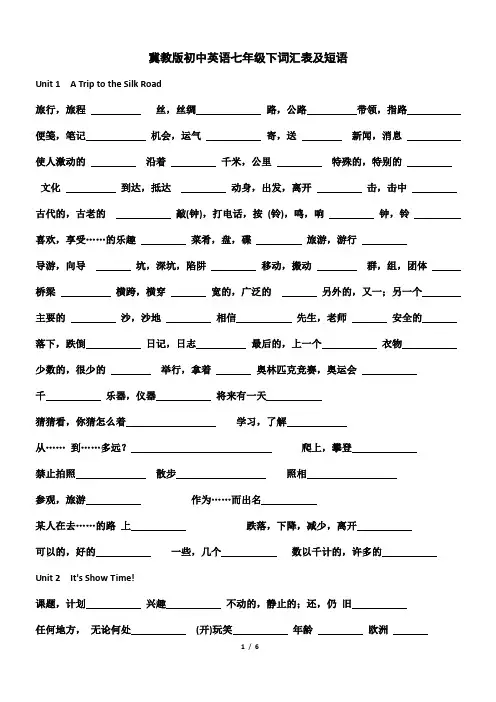 冀教版初中英语七年级下词汇表及短语
Unit 1 A Trip to the Silk Road
旅行，旅程 __________ 丝，丝绸__________ 路，公路__________带领，指路__________
便笺，笔记__________ 机会，运气 __________ 寄，送 ________ 新闻，消息 __________
使人激动的 ________ 沿着 ________ 千米，公里 ________ 特殊的，特别的 ________
文化 ________ 到达，抵达 ________ 动身，出发，离开 ________ 击，击中 ________
古代的，古老的 __________ 敲(钟)，打电话，按 (铃)，鸣，响 ________ 钟，铃 ________
喜欢，享受……的乐趣 ________ 菜肴，盘，碟 ________ 旅游，游行 ________
导游，向导 ______ 坑，深坑，陷阱 ________ 移动，搬动 ________ 群，组，团体 ______
桥梁 ________ 横跨，横穿 ______ 宽的，广泛的 ______ 另外的，又一；另一个______
主要的 ________ 沙，沙地 ________ 相信__________ 先生，老师 ______ 安全的______
落下，跌倒__________ 日记，日志________ 最后的，上一个________ 衣物__________
少数的，很少的 ________ 举行，拿着 ______ 奥林匹克竞赛，奥运会 __________
千 __________ 乐器，仪器__________ 将来有一天__________
猜猜看，你猜怎么着________________ 学习，了解__________
从…… 到……多远？__________________________ 爬上，攀登____________
禁止拍照____________ 散步______________ 照相________________
参观，旅游__________ 作为……而出名__________
某人在去……的路 上__________ 跌落，下降，减少，离开__________
可以的，好的__________ 一些，几个__________ 数以千计的，许多的__________
Unit 2 It's Show Time!
课题，计划__________ 兴趣__________ 不动的，静止的；还，仍 旧__________
任何地方， 无论何处__________ (开)玩笑__________ 年龄 ________ 欧洲 ______
1 / 6